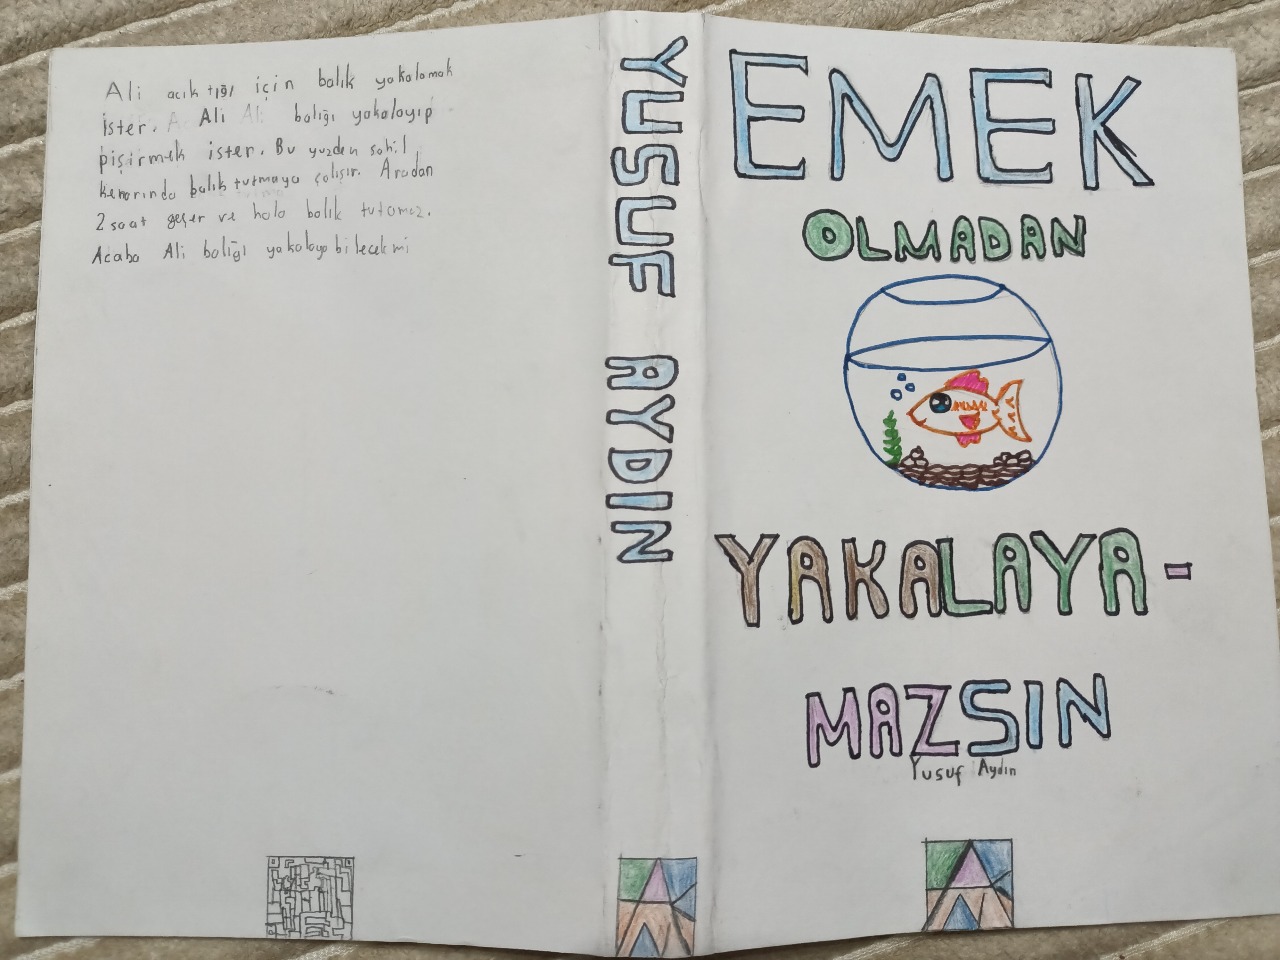 Ali acıktığı için balık yakalamak
ister. Ali balığı yakalayıp
pişirmek ister. Bu yuzden sahil
kenarında balık tutmaya çalışır. Aradan
2 saat geçer ve hala balık tutamaz.
Acaba Ali balığı yakalayabilecek mi
YUSUF AYDIN
EMEK
OLMADAN
YAKALAYA-
MAZSIN
Yusuf Aydın